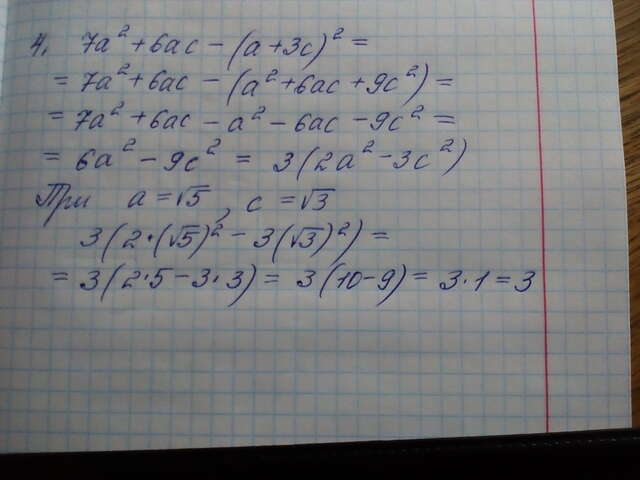 4. 7a² + 6ac - (a + 3c)² =
= 7a² + 6ac - (a² + 6ac + 9c²) =
= 7a² + 6ac - a² - 6ac - 9c² =
= 6a² - 9c² = 3(2a² - 3c²)
При a = √5, c = √3
3(2·(√5)² - 3(√3)²) =
= 3(2·5 - 3·3) = 3(10 - 9) = 3·1 = 3